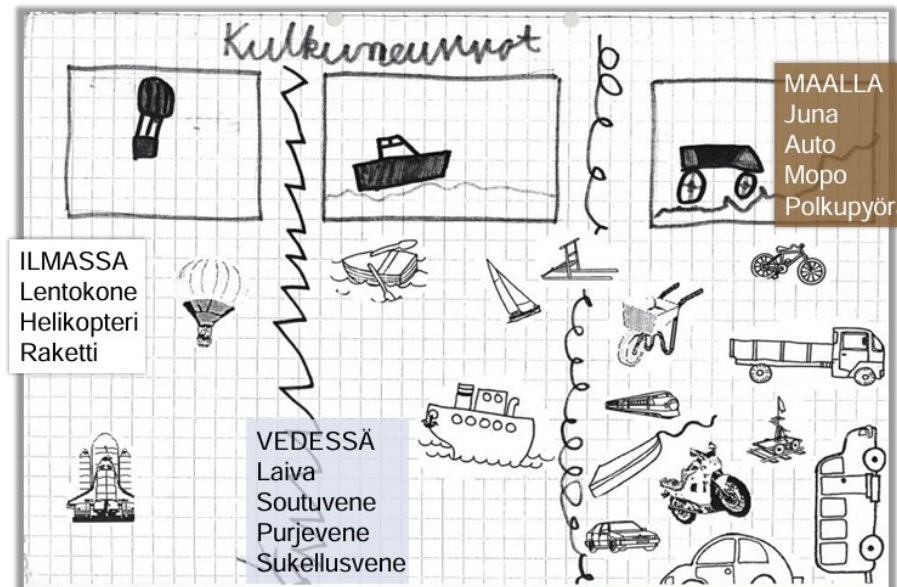 Kulkuneuvot
MAALLA
Juna
Auto
Mopo
Polkupyör
ILMASSA
Lentokone
Helikopteri
Raketti
VEDESSÄ
Laiva
Soutuvene
Purjevene
Sukellusvene